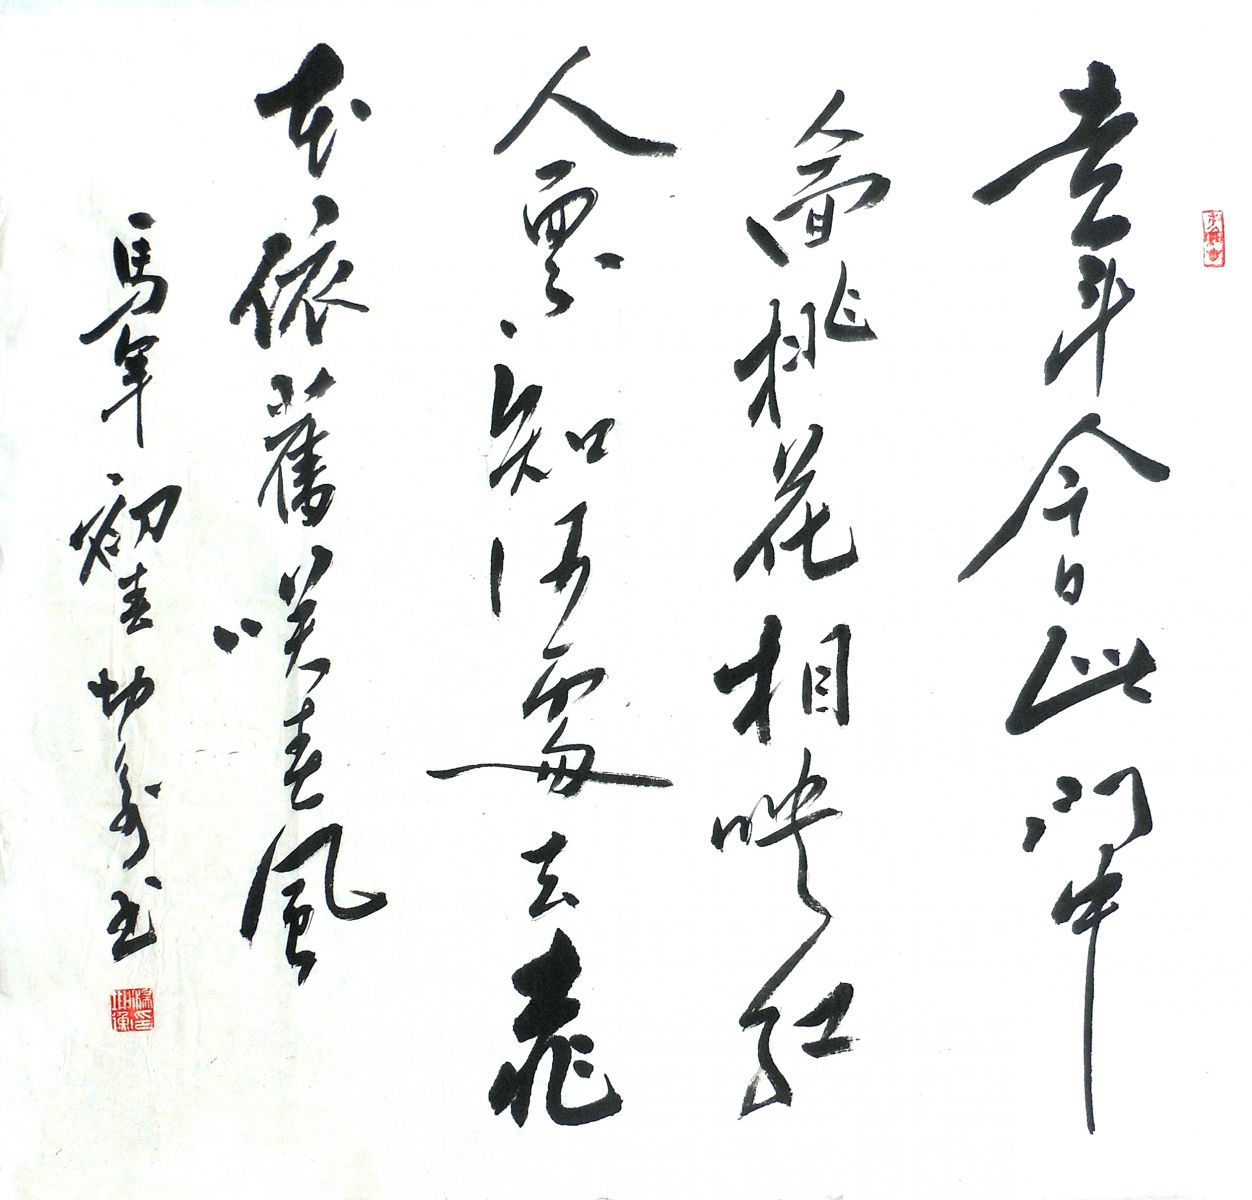 去年今日此门中
人面桃花相映红
人面不知何處去桃
花依舊咲春風
馬年初春
书